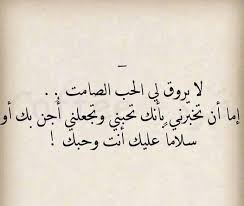 لا يروق لي الحب الصامت . .
إما أن تخبرني بأنك تحبني وتجعلني أجن بك أو
سلاماً عليك أنت وحبك !